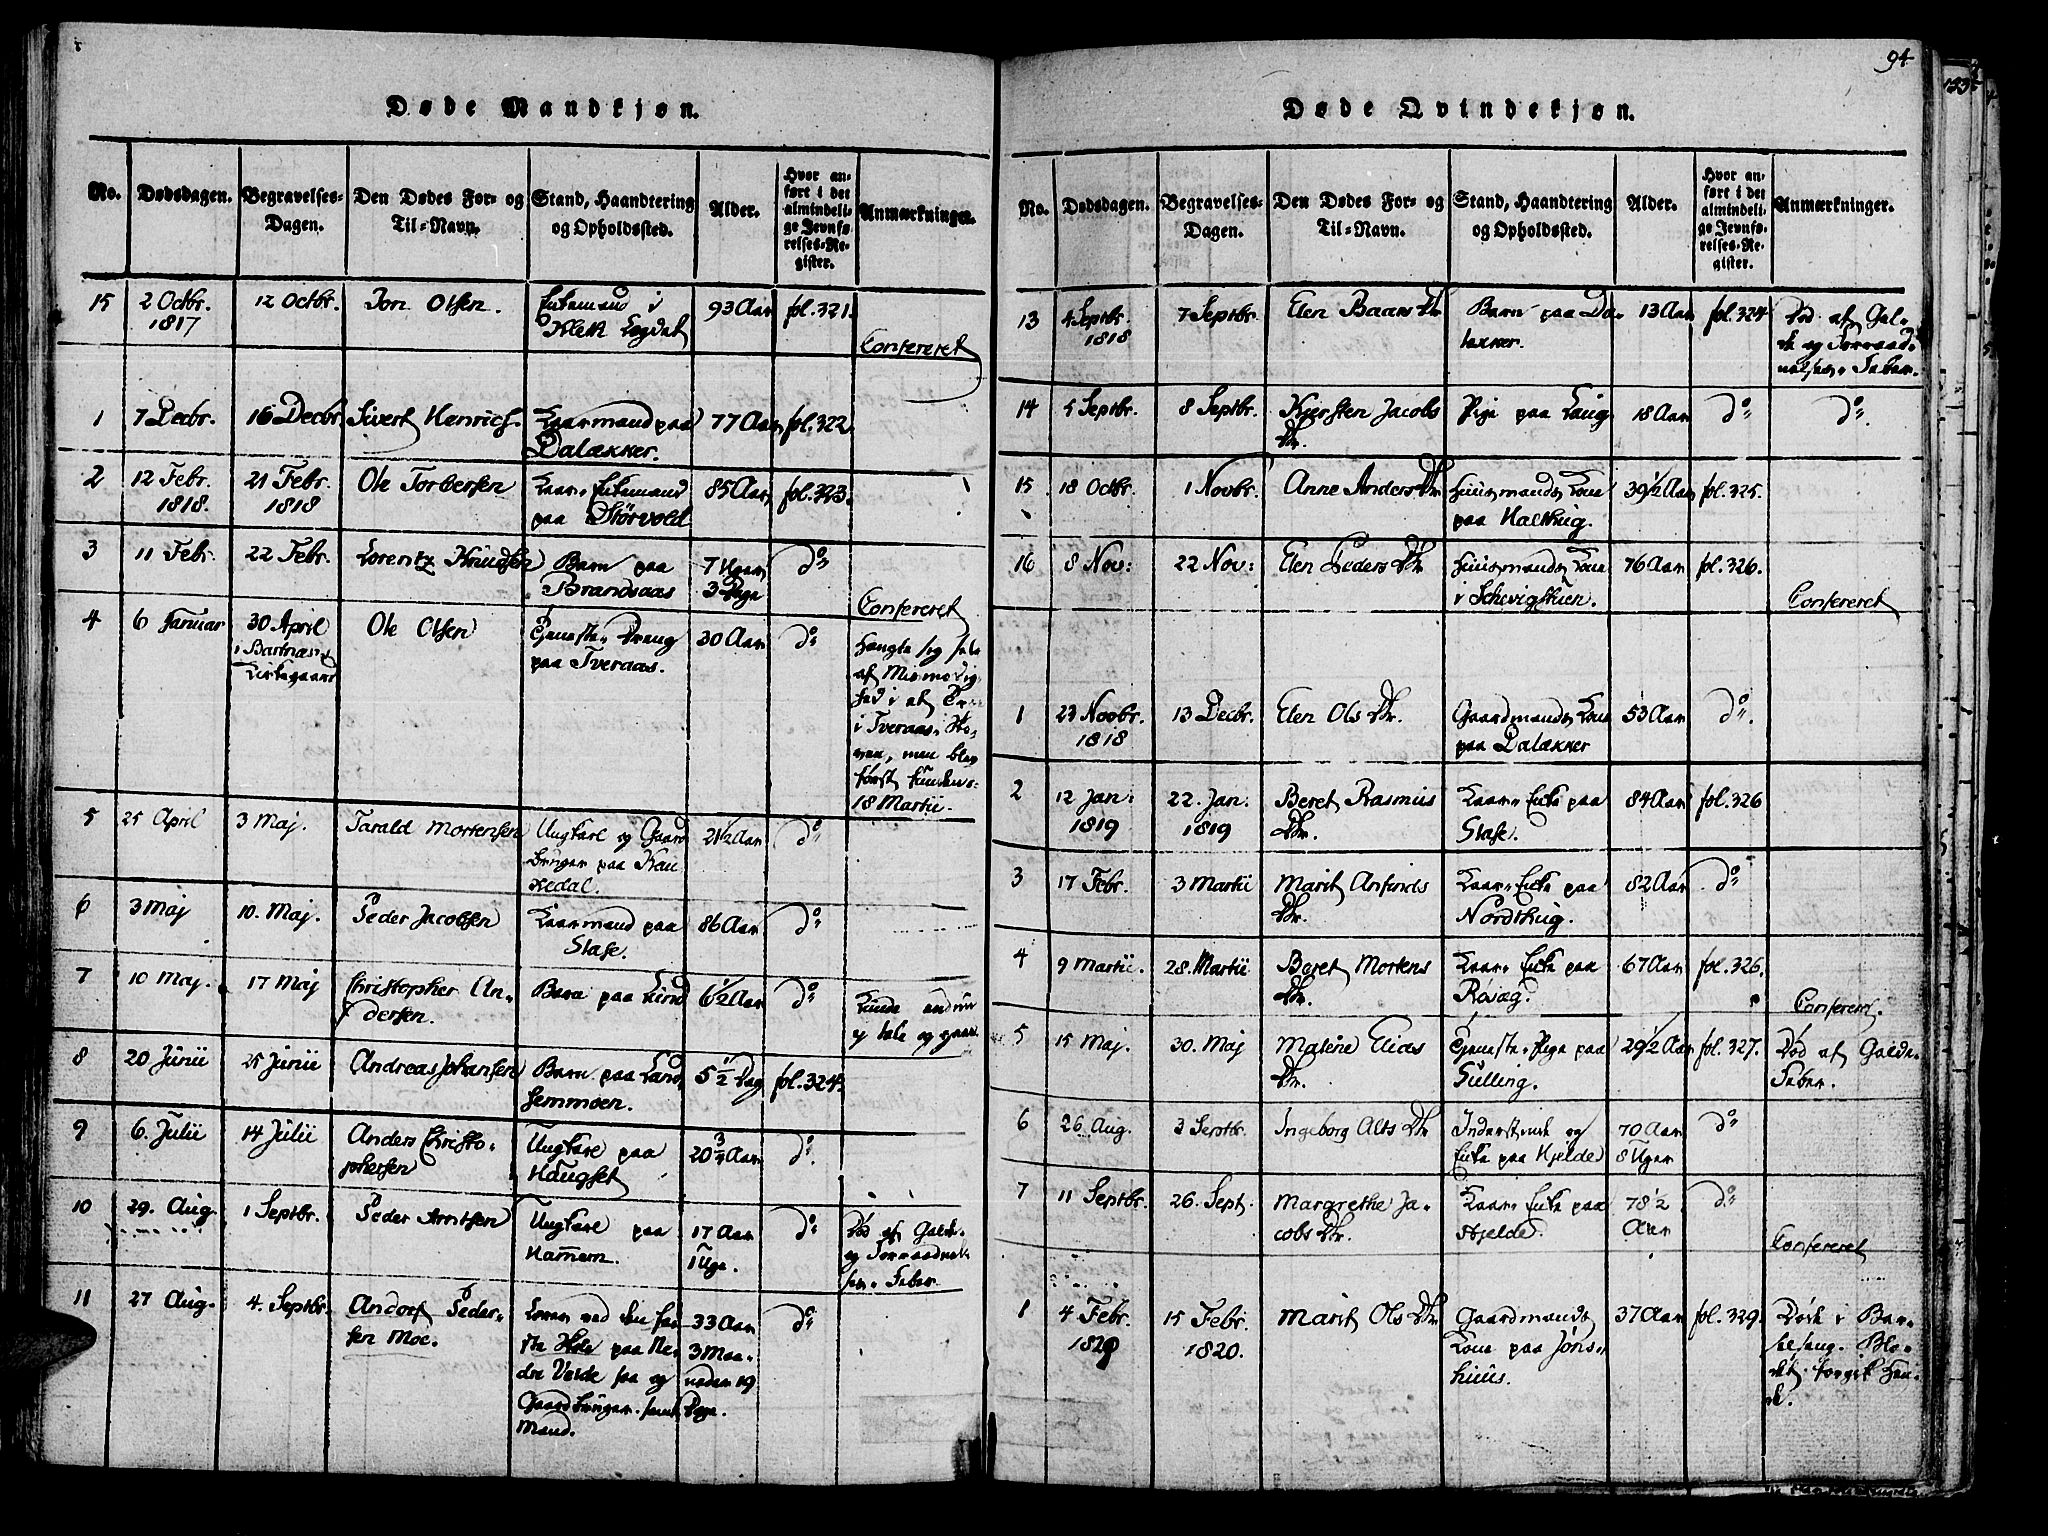 94
Døde Mandkjøn.
No. Dødsdagen. Begravelses-Dagen. Den Dødes For- og Til-Navn. Stand, Haandtering og Opholdssted. Alder. Hvor anført i det almindelige Jevnførelses-Register. Anmærkninger.
15 2 Octbr. 1817 12 Octbr. Jon Olsen. Enkemand i Klek Legdet 93 Aar fol. 321.
Confereret
1 7 Decbr. 16 Decbr. Sivert Henrichs. Kaarmand paa Dalækker. 77 Aar fol. 322.
2 12 Febr. 1818. 21 Febr. 1818 Ole Torbersen Kaar- Enkemand paa Störvold 85 Aar fol. 323.
3 11 Febr. 22 Febr. Lorentz Knudsen Barn paa Brandsaas 7 Uger 3 Dage do
Confereret
4 6 Januar 30 April i Bartnæs Kirkegaard Ole Olsen Tjeneste-Dreng paa Tveraas. 30 Aar do Hængte sig selv af Mismodighed i et Træ i Tveraas-Skoven, men blev først funden 18 Martii.
5 25 April 3 Maj. Tarald Mortensen Ungkarl og Gaardbruger paa Kaukedal. 21 1/2 Aar do
6 3 Maj 10. Maj. Peder Jacobsen Kaarmand paa Stafe. 86 Aar do
7 10 Maj. 17 Maj Christopher Andersen. Barn paa Lund 6 1/2 Aar do Kunde endnu ej tale og gaae.
8 20 Junii 25 Junii Andreas Johansen Barn paa Landsemmoen. 5 1/2 Dag fol. 324.
9 6. Julii 14 Julii Anders Christophersen Ungkarl paa Haugset 20 3/4 Aar do
10 29. Aug. 1 Septbr. Peder Arntsen Ungkarl paa Hammem. 17 Aar 1 Uge. do Død af Galde- og Forraadnelsen- Feber.
11 27 Aug. 4. Septbr. Andor Pedersen Moe. Lærer ved den faste Skole paa Nedre Velde saa og Gaardbruger. samt Mand. 33 Aar 3 Maaneder 19 Dage. do
Døde Qvindekjøn.
No. Dødsdagen. Begravelses-Dagen. Den Dødes For- og Til-Navn. Stand, Haandtering og Opholdssted. Alder. Hvor anført i det almindelige Jevnførelses-Register. Anmærkninger.
13 4 Septbr. 1818 7 Septbr. Elen Baars Dtr. Barn paa Dalækker. 13 Aar fol. 324 Død af Galde og Forraadnelsen- Feber.
14 5 Septbr. 8 Septbr. Kjersten Jacobs Dtr. Pige paa Haug 18 Aar do do
15 18 Octbr. 1 Novbr. Anne Anders Dtr. Huusmands Kone paa Halthug. 39 1/2 Aar fol. 325.
16 8 Nov: 22 Nov: Elen Peders Dtr. Huusmands Kone i Schevigstuen. 76 Aar fol. 326.
Confereret
1 23 Novbr. 1818 13 Decbr. Elen Ols Dtr. Gaardmands Kone paa Dalækker 53 Aar do
2 12 Jan: 1819 22. Jan: 1819 Beret Rasmus Dtr. Kaar- Enke paa Stafe. 84 Aar fol. 326
3 17 Febr. 3 Martii Marit Anfinds Dtr. Kaar- Enke paa Nordthug. 82 Aar do
4 9 Martii. 28. Martii Beret Mortens Dtr. Kaar- Enke paa Rosæg. 67 Aar fol. 326.
Confereret.
5 15 Maj. 30. Maj Malene Elias Dtr. Tjeneste- Pige paa Sulling. 29 1/2 Aar fol. 327. Død af Galde-Feber.
6 26 Aug. 3 Septbr. Ingeborg Alts Dtr Inderstinde og Enke paa Hjelde 70 Aar 8 Uger do
7 11 Septbr. 26. Sept. Margrethe Jacobs Dtr. Kaar- Enke paa Hjelde. 78 1/2 Aar do
Confereret
1 4 Febr. 1820 15 Febr. 1820. Marit Ols Dtr Gaardmands Kone paa Jønshuus. 37 Aar fol. 329. Døde i Barselseng. Blodet forgik Hende.